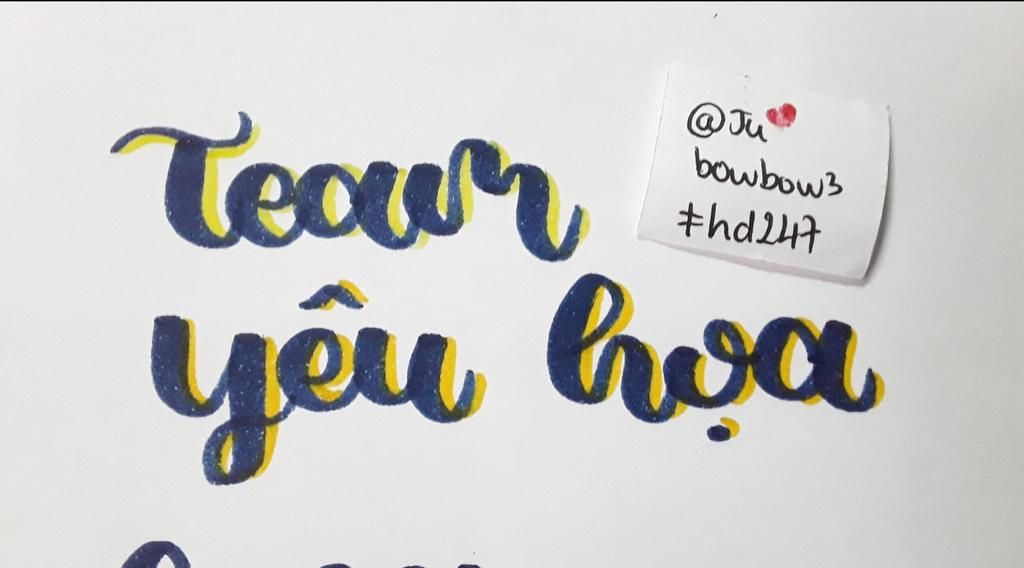 Team
yêu họa
@Ju
bowbow3
#hd247